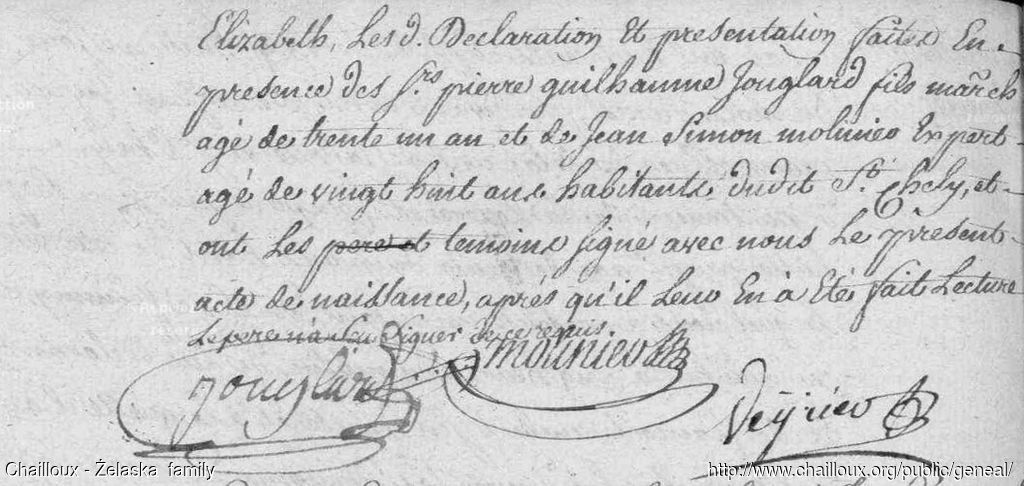 Elizabeth, Les d. Declaration Et presentation faites En
presence des Srs. pierre guilhaume Jouglard fils march
agé de trente un an et de Jean Simon molinier Expert
agé de vingt huit ans habitants dudit St. Chely, et
ont Les pere et temoins signé avec nous Le present
acte de naissance, aprés qu'il Leur En à Eté fait Lecture
Le pere n'a su signer de ce requis.
Jouglard molinier
Veyrier
Chailloux - Żelaska family http://www.chailloux.org/public/geneal/